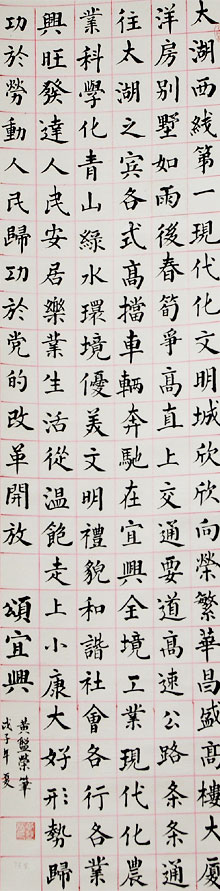 太湖西线第一現代化文明城欣欣向榮繁華昌盛高樓大厦
洋房别墅如雨後春筍爭高直上交通要道高速公路条条通
往太湖之宾各式高擋車輛奔馳在宜興全境工業現代化農
業科學化青山綠水環境優美文明禮貌和諧社會各行各業
興旺發達人民安居樂業生活從温飽走上小康大好形勢歸
功於勞動人民歸功於党的改革開放 頌宜興
黄盤榮筆
戊子年夏